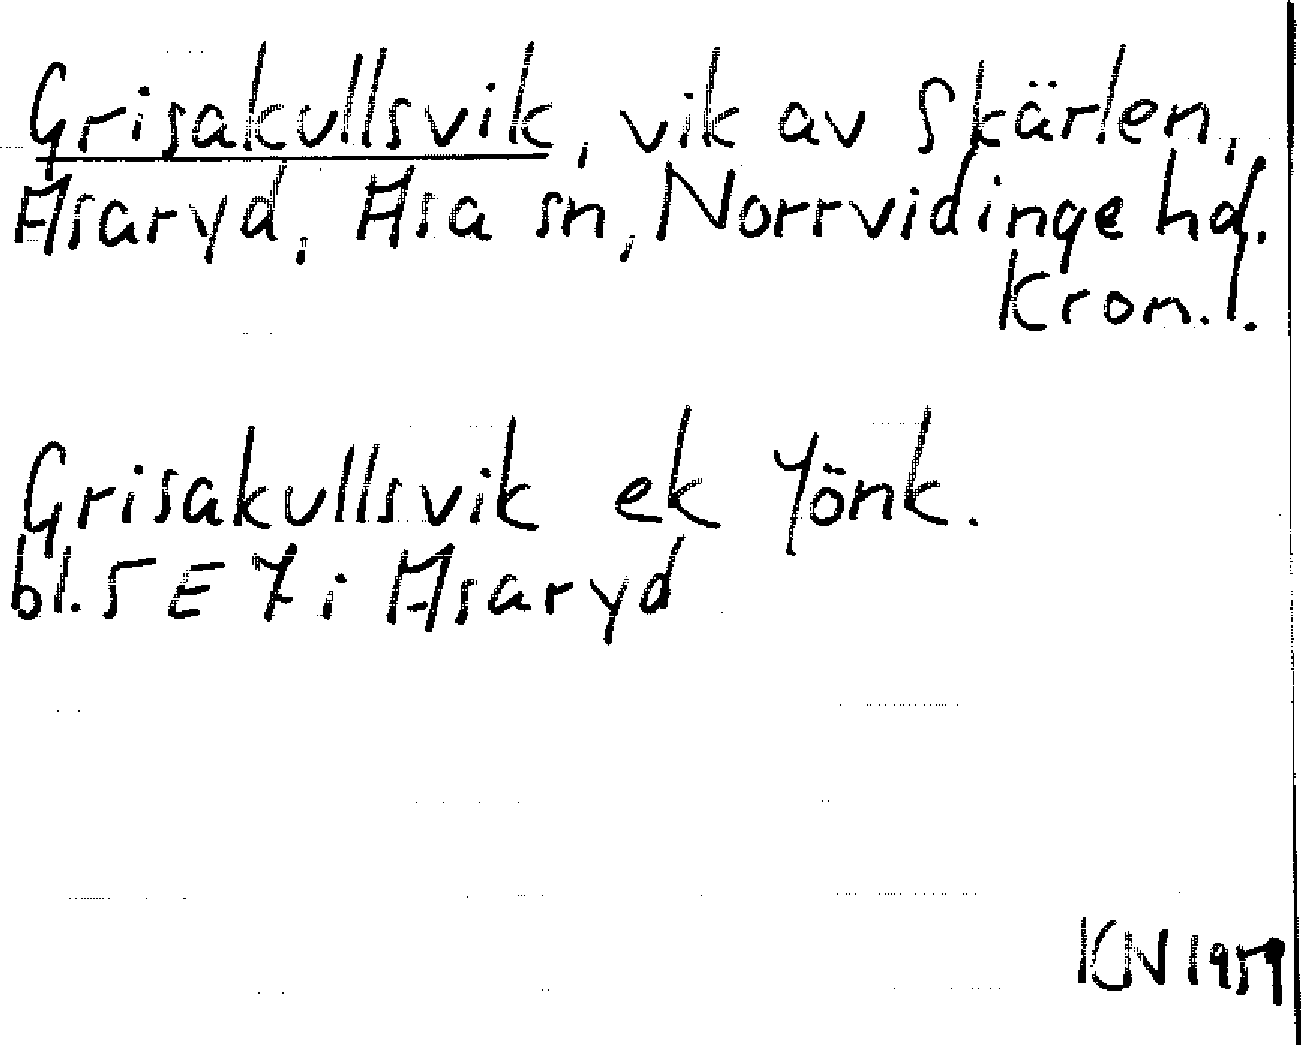 Grisakullsvik, vik av Skärlen,
Asaryd, Asa sn, Norrvidinge hd.
Kron.l.
Grisakullsvik ek Jönk.
bl. 5 E 7 i Asaryd
KN 1959